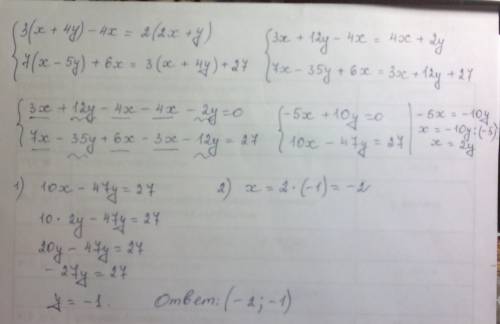 3(x + 4y) - 4x = 2(2x + y)
7(x - 5y) + 6x = 3(x + 4y) + 27
3x + 12y - 4x = 4x + 2y
7x - 35y + 6x = 3x + 12y + 27
3x + 12y - 4x - 4x - 2y = 0
7x - 35y + 6x - 3x - 12y = 27
-5x + 10y = 0
10x - 47y = 27
-5x = -10y
x = -10y:(-5)
x = 2y
1) 10x - 47y = 27
10 · 2y - 47y = 27
20y - 47y = 27
-27y = 27
y = -1.
2) x = 2 · (-1) = -2
Ответ: (-2; -1)